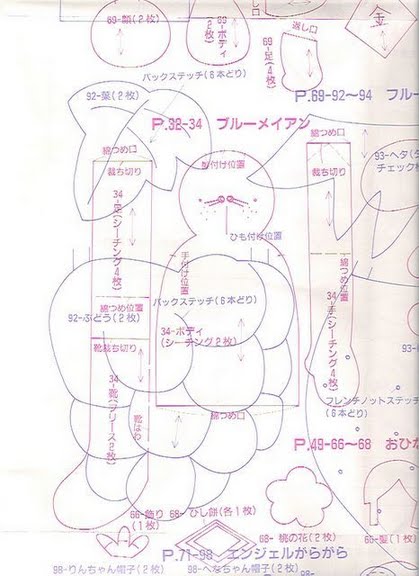 69-顔(2枚)
69-ボディ(2枚)
返し口
69-足(4枚)
金
バックステッチ(6本どり)
92-葉(2枚)
P.69-92〜94 フルー
P.32-34 ブルーメイアン
綿つめ口
綿つめ口
裁ち切り
裁ち切り
93-ヘタ(
チェック
34-足(シーチング4枚)
ひも付け位置
手付け位置
綿つめ位置
綿つめ位置
バックステッチ(6本どり)
92-ぶどう(2枚)
34-ボディ
(シーチング2枚)
34-手(シーチング4枚)
靴裁ち切り
93-
34-靴(フリース2枚)
靴はわ
綿つめ口
フレンチノットステッチ
(6本どり)
P.49-66〜68 おひな
66-飾り
(1枚)
68-ひし餅(各1枚)
68-桃の花(2枚)
66-髪(1枚)
P.71-98 エンジェルがらがら
98-りんちゃん帽子(2枚)
98-へなちゃん帽子(2枚)